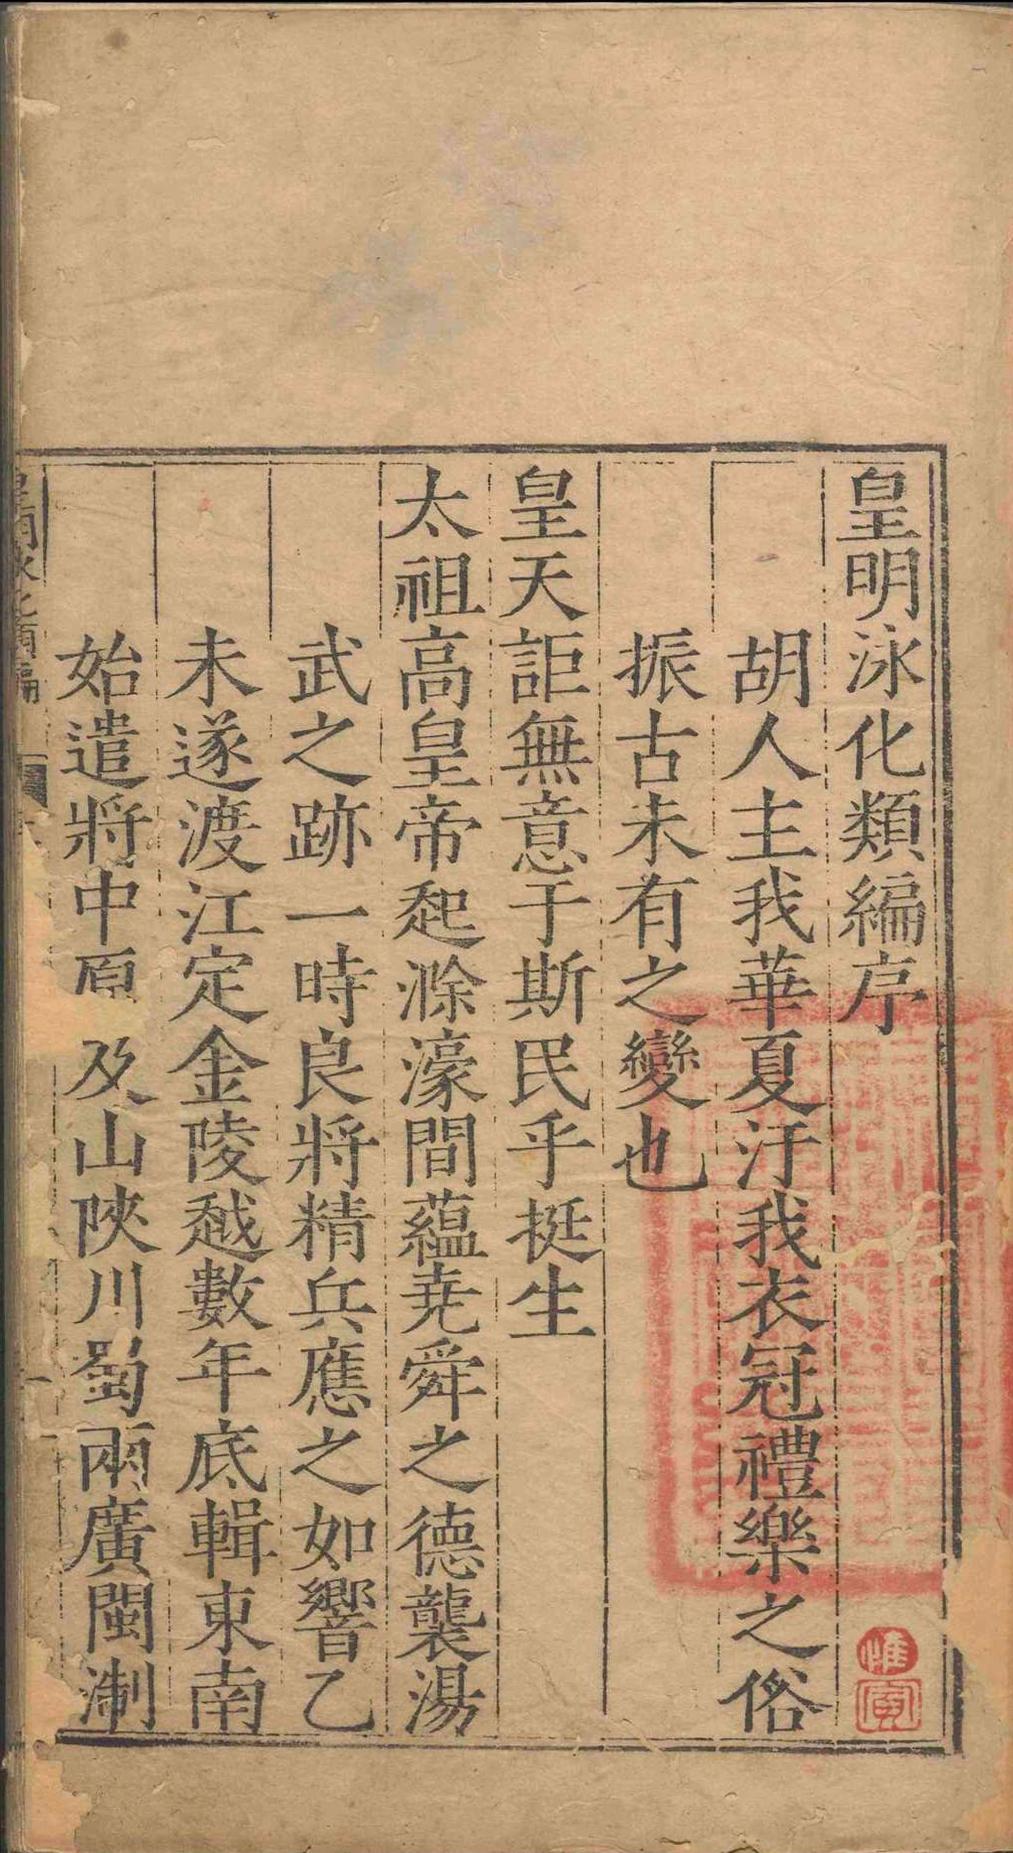 皇明泳化類編序
胡人主我華夏汙我衣冠禮樂之俗
振古未有之變也
皇天詎無意于斯民乎挺生
太祖高皇帝起滁濠間蘊尭舜之德襲湯
武之跡一時良將精兵應之如響乙
未遂渡江定金陵越數年底輯東南
始遣將中原及山陝川蜀兩廣閩淛
皇明泳化類編
惟寅